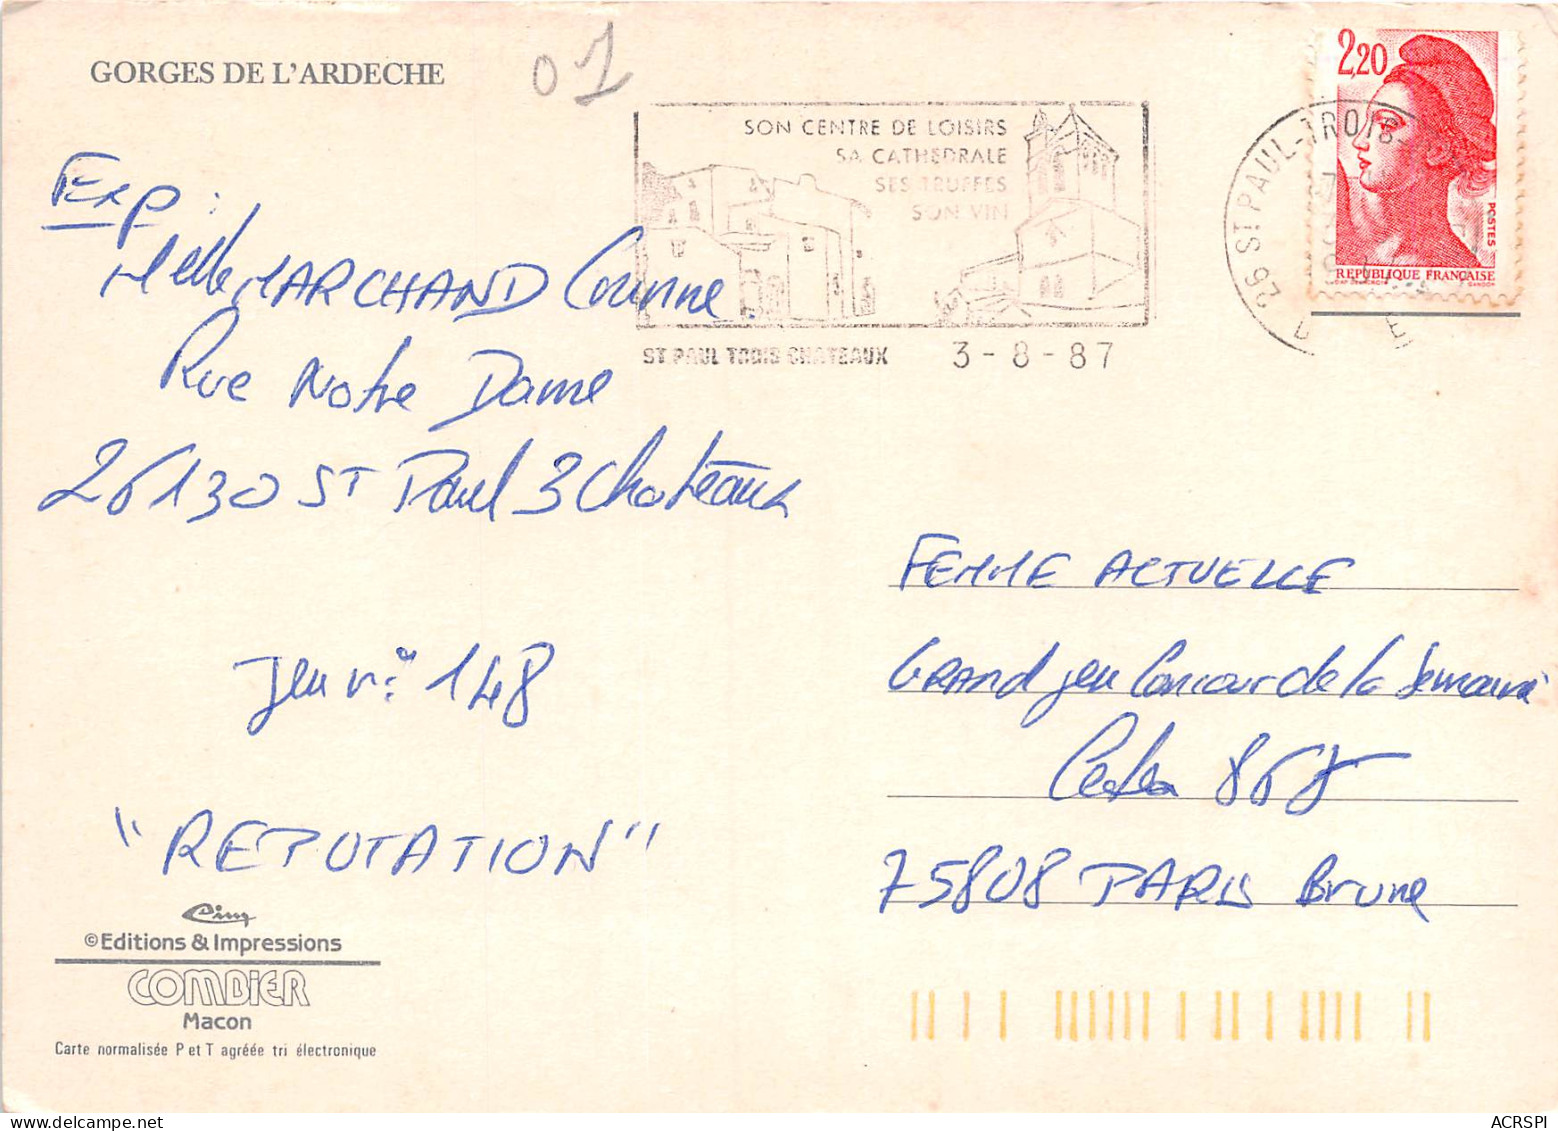 GORGES DE L'ARDECHE
01
SON CENTRE DE LOISIRS
SA CATHEDRALE
SES TRUFFES
SON VIN
ST PAUL TROIS CHATEAUX
3-8-87
26 ST PAUL-TROIS
2,20
POSTES
REPUBLIQUE FRANÇAISE
GANDON
Exp:
Melle MARCHAND Corinne
Rue Notre Dame
26130 ST Paul 3 Chateaux
Jeu n° 148
"REPUTATION"
FEMME ACTUELLE
GRAND jeu Concour de la Semaine
Cedex 8608
75808 PARIS Brune
Cim
©Editions & Impressions
COMBIER
Macon
Carte normalisée P et T agréée tri électronique
ACRSPI